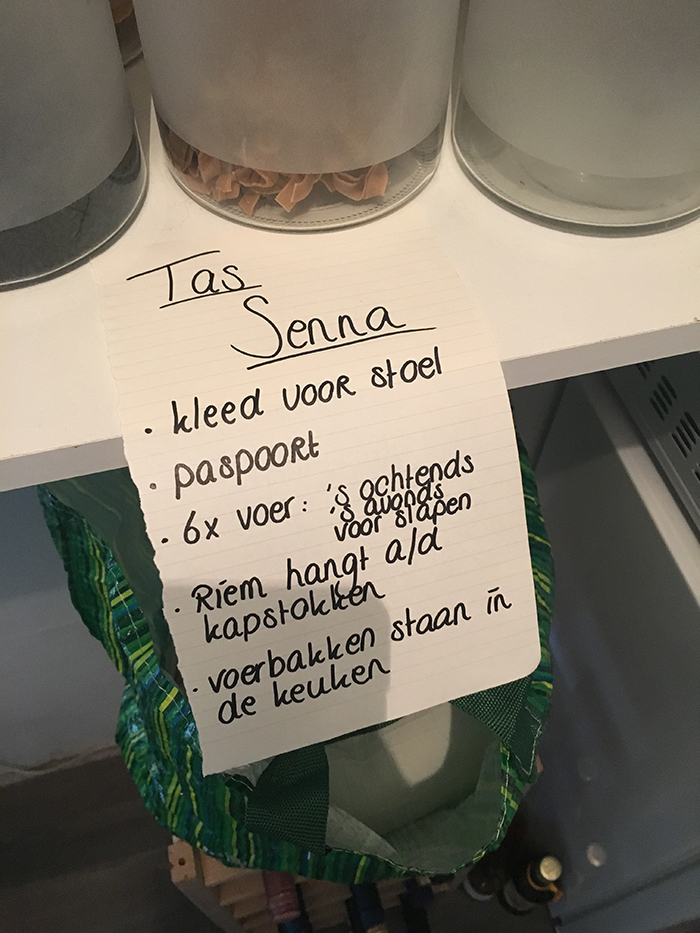 Tas
Senna
· kleed voor stoel
· paspoort
· 6x voer: 's ochtends
's avonds
voor slapen
· Riem hangt a/d
kapstokken
· voerbakken staan in
de keuken